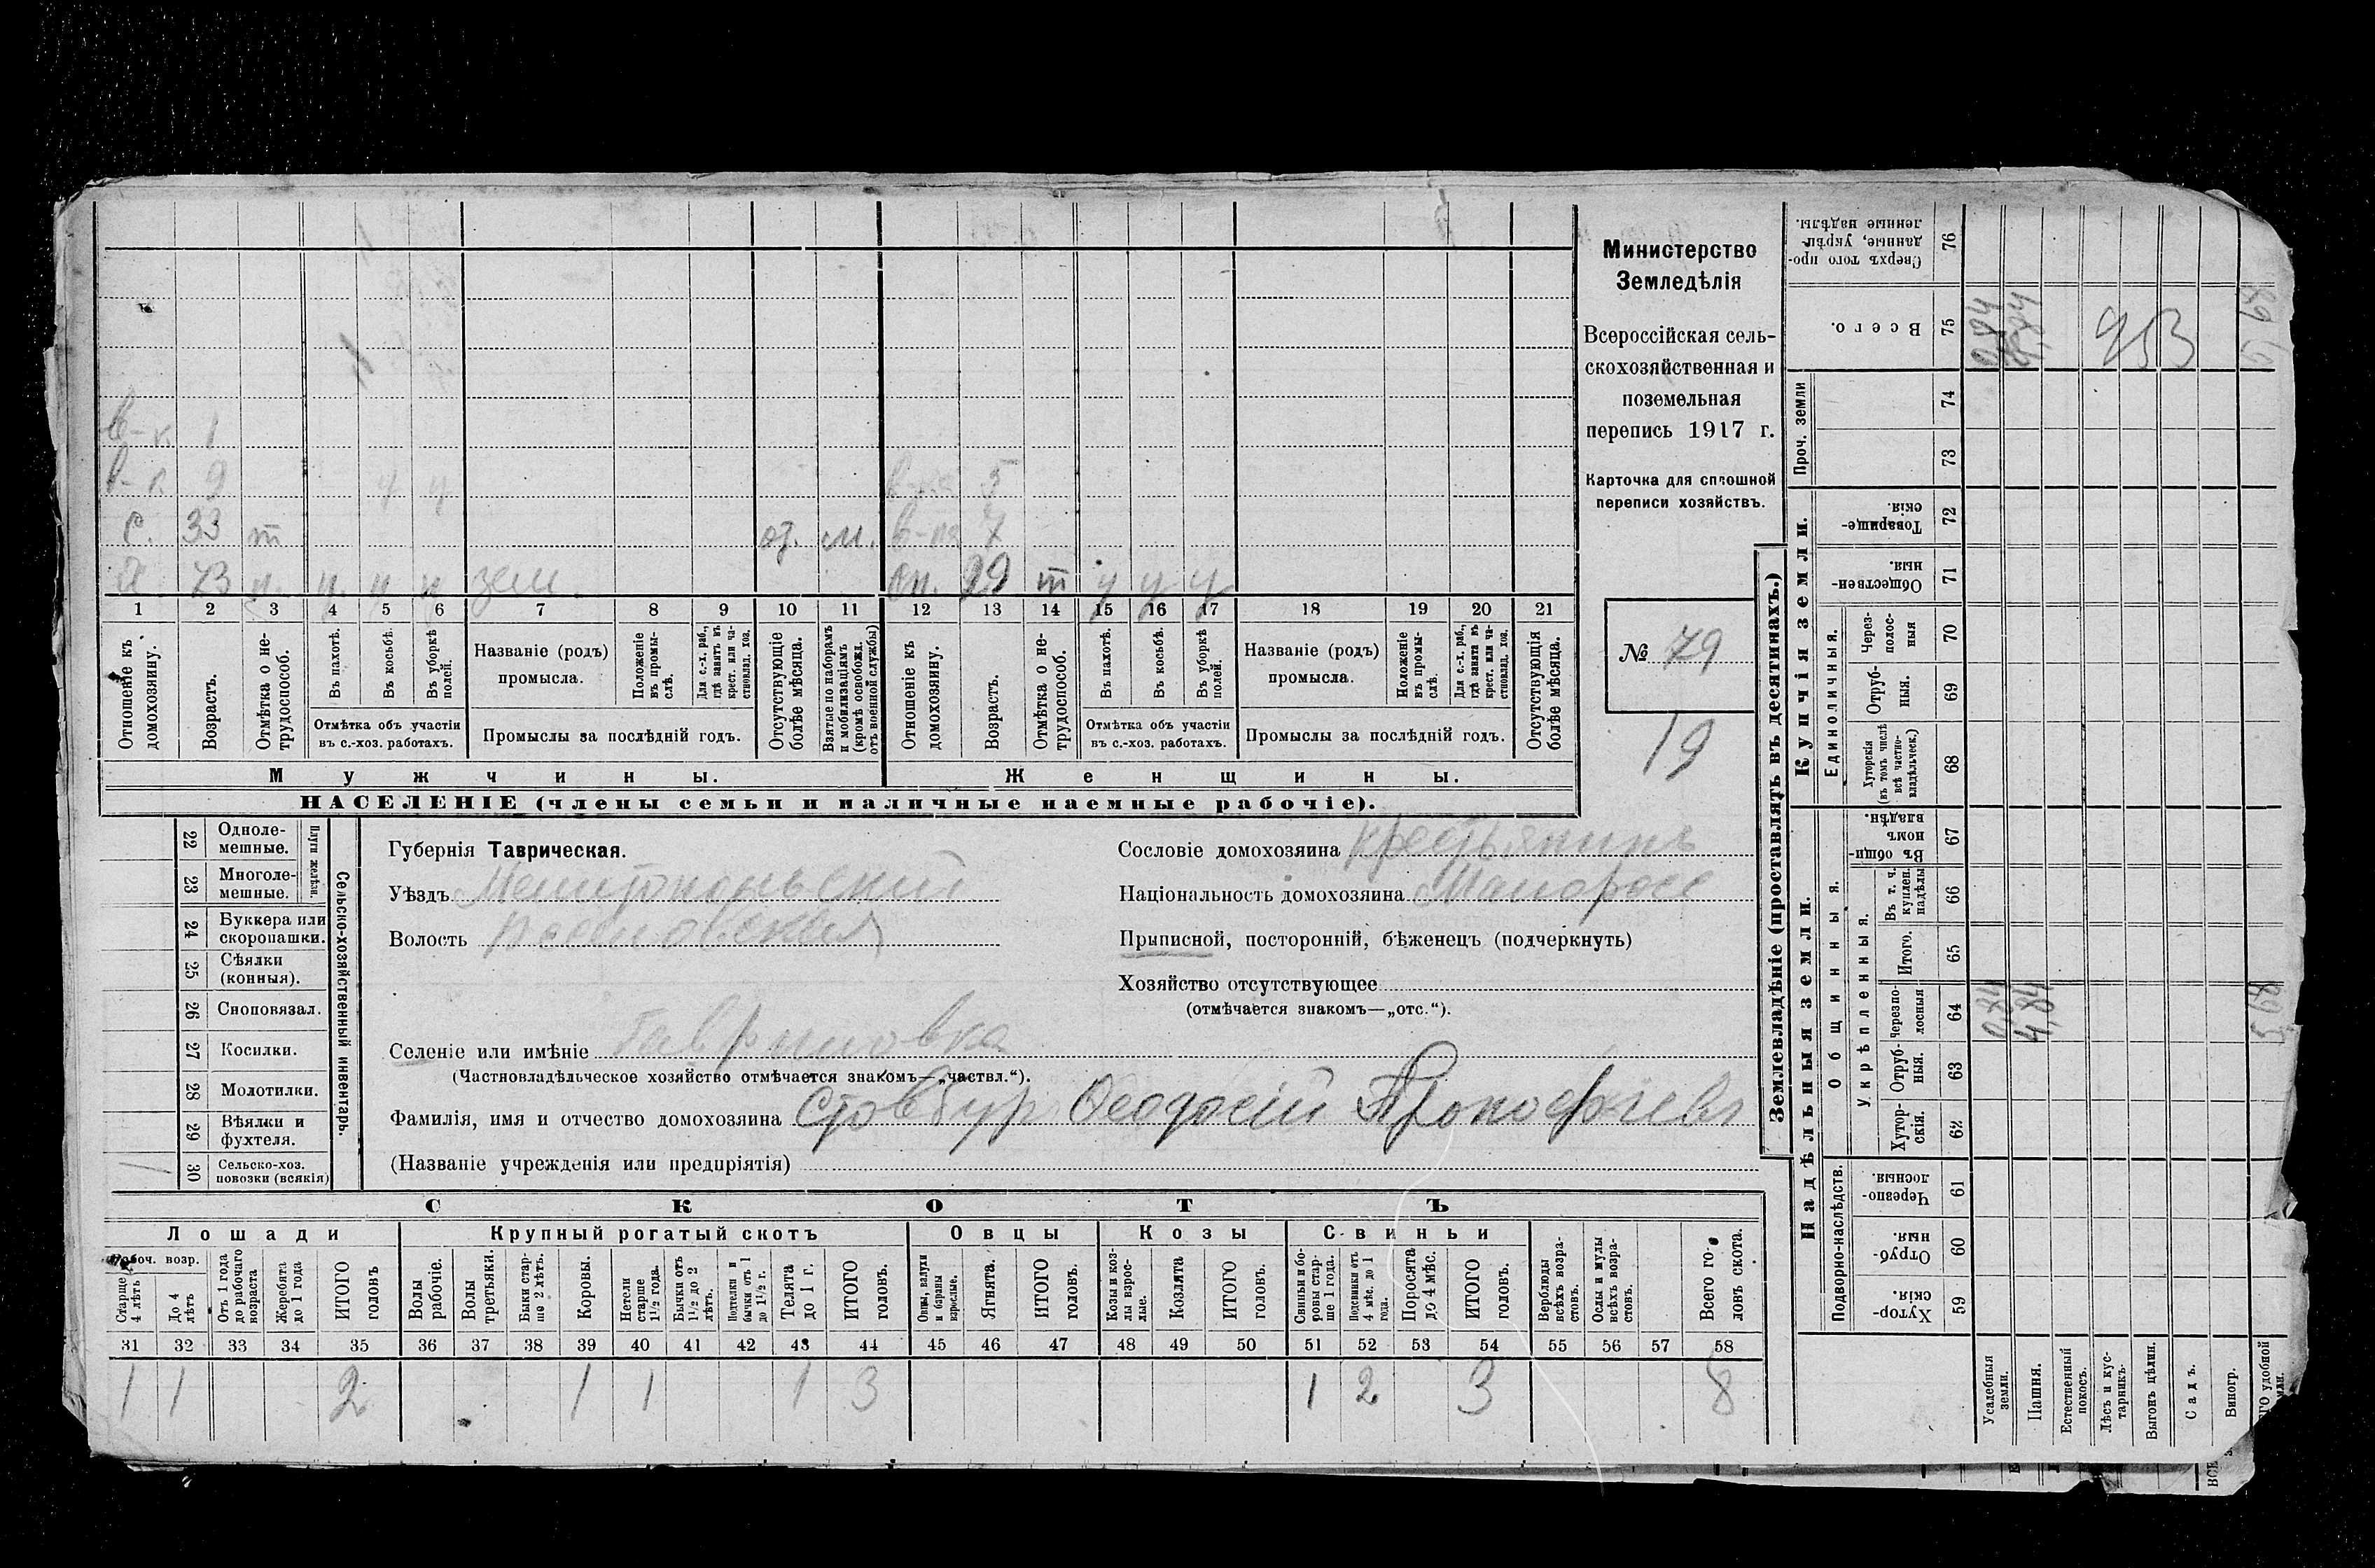 Министерство
Земледѣлія
Всероссійская сель-
скохозяйственная и
поземельная
перепись 1917 г.
Карточка для сплошной
переписи хозяйствъ.
№ 79
19
в-к 1
в-к 9 ч ч в-ка 5
с. 33 т от. м. в-ка 7
73 н. ч. ч ч зем. сн. 29 т ч ч ч
1 2 3 4 5 6 7 8 9 10 11 12 13 14 15 16 17 18 19 20 21
Отношеніе къ домохозяину.
Возрастъ.
Отмѣтка о не-трудоспособ.
Въ пахотѣ.
Въ косьбѣ.
Въ уборкѣ полей.
Отмѣтка объ участіи
въ с.-хоз. работахъ.
Названіе (родъ)
промысла.
Положеніе въ промы-слѣ.
Для с.-х. раб., гдѣ занятъ въ крест. или ча-стновлад. хоз.
Промыслы за послѣдній годъ.
Отсутствующіе болѣе мѣсяца.
Взятые по наборамъ и мобилизаціямъ (кромѣ освобожд. отъ военной службы)
Отношеніе къ домохозяину.
Возрастъ.
Отмѣтка о не-трудоспособ.
Въ пахотѣ.
Въ косьбѣ.
Въ уборкѣ полей.
Отмѣтка объ участіи
въ с.-хоз. работахъ.
Названіе (родъ)
промысла.
Положеніе въ промы-слѣ.
Для с.-х. раб., гдѣ занята въ крест. или ча-стновлад. хоз.
Промыслы за послѣдній годъ.
Отсутствующія болѣе мѣсяца.
Мужчины. Женщины.
НАСЕЛЕНІЕ (члены семьи и наличные наемные рабочіе).
Сельско-хозяйственный инвентарь.
Плуги желѣзн.
22 Одноле-мешные.
23 Многоле-мешные.
24 Буккера или скоропашки.
25 Сѣялки (конныя).
26 Сноповязал.
27 Косилки.
28 Молотилки.
29 Вѣялки и фухтеля.
30 Сельско-хоз. повозки (всякія) 1
Губернія Таврическая.
Уѣздъ Мелитопольскій
Волость
Селеніе или имѣніе Гавриловка
(Частновладѣльческое хозяйство отмѣчается знакомъ—„частвл.“).
Сословіе домохозяина крестьянинъ
Національность домохозяина Малоросс
Приписной, посторонній, бѣженецъ (подчеркнуть)
Хозяйство отсутствующее
(отмѣчается знакомъ—„отс.“).
Фамилія, имя и отчество домохозяина Стовбур Феодосій Прокофіевъ
(Названіе учрежденія или предпріятія)
СКОТЪ
Лошади Крупный рогатый скотъ Овцы Козы Свиньи
Рабоч. возр.
Старше 4 лѣтъ
До 4 лѣтъ
Отъ 1 года до рабочаго возраста
Жеребята до 1 года
ИТОГО головъ
Волы рабочіе.
Волы третьяки.
Быки стар-ше 2 лѣтъ.
Коровы.
Нетели старше 1½ года.
Бычки отъ 1½ до 2 лѣтъ.
Подтелки и бычки отъ 1 до 1½ г.
Телята до 1 г.
ИТОГО головъ.
Овцы, валухи и бараны взрослые.
Ягнята.
ИТОГО головъ.
Козы и коз-лы взрос-лые.
Козлята
ИТОГО головъ.
Свиньи и бо-ровы стар-ше 1 года.
Подсвинки отъ 4 мѣс. до 1 года.
Поросята до 4 мѣс.
ИТОГО головъ.
Верблюды всѣхъ возра-стовъ.
Ослы и мулы всѣхъ возра-стовъ.
Всего го-ловъ скота.
31 32 33 34 35 36 37 38 39 40 41 42 43 44 45 46 47 48 49 50 51 52 53 54 55 56 57 58
1 1 2 1 1 1 3 1 2 3 8
Землевладѣніе (проставлять въ десятинахъ.)
Купчія земли.
Проч. земли
Единоличныя.
Сверхъ того про-данные, укрѣп-ленные надѣлы. 76
Всего. 75 0,84 4,84 453
74
73
Товарище-скія. 72
Обществен-ныя. 71
Через-полос-ныя 70
Отруб-ныя. 69
Хуторскія (въ томъ числѣ всѣ частно-владѣльческ.) 68
Надѣльныя земли.
Общинныя.
Укрѣпленныя.
Въ общи-номъ владѣн. 67
Въ т. ч. куплен. надѣлы 66
Итого. 65
Черезпо-лосныя 64 0,84 4,84
Отруб-ныя. 63
Хутор-скія. 62
Подворно-наслѣдств.
Черезпо-лосныя. 61
Отруб-ныя. 60
Хутор-скія. 59
Усадебныя земли.
Пашня.
Естественный покосъ.
Лѣсъ и кус-тарникъ.
Выгонъ цѣлин.
Садъ.
Виногр.